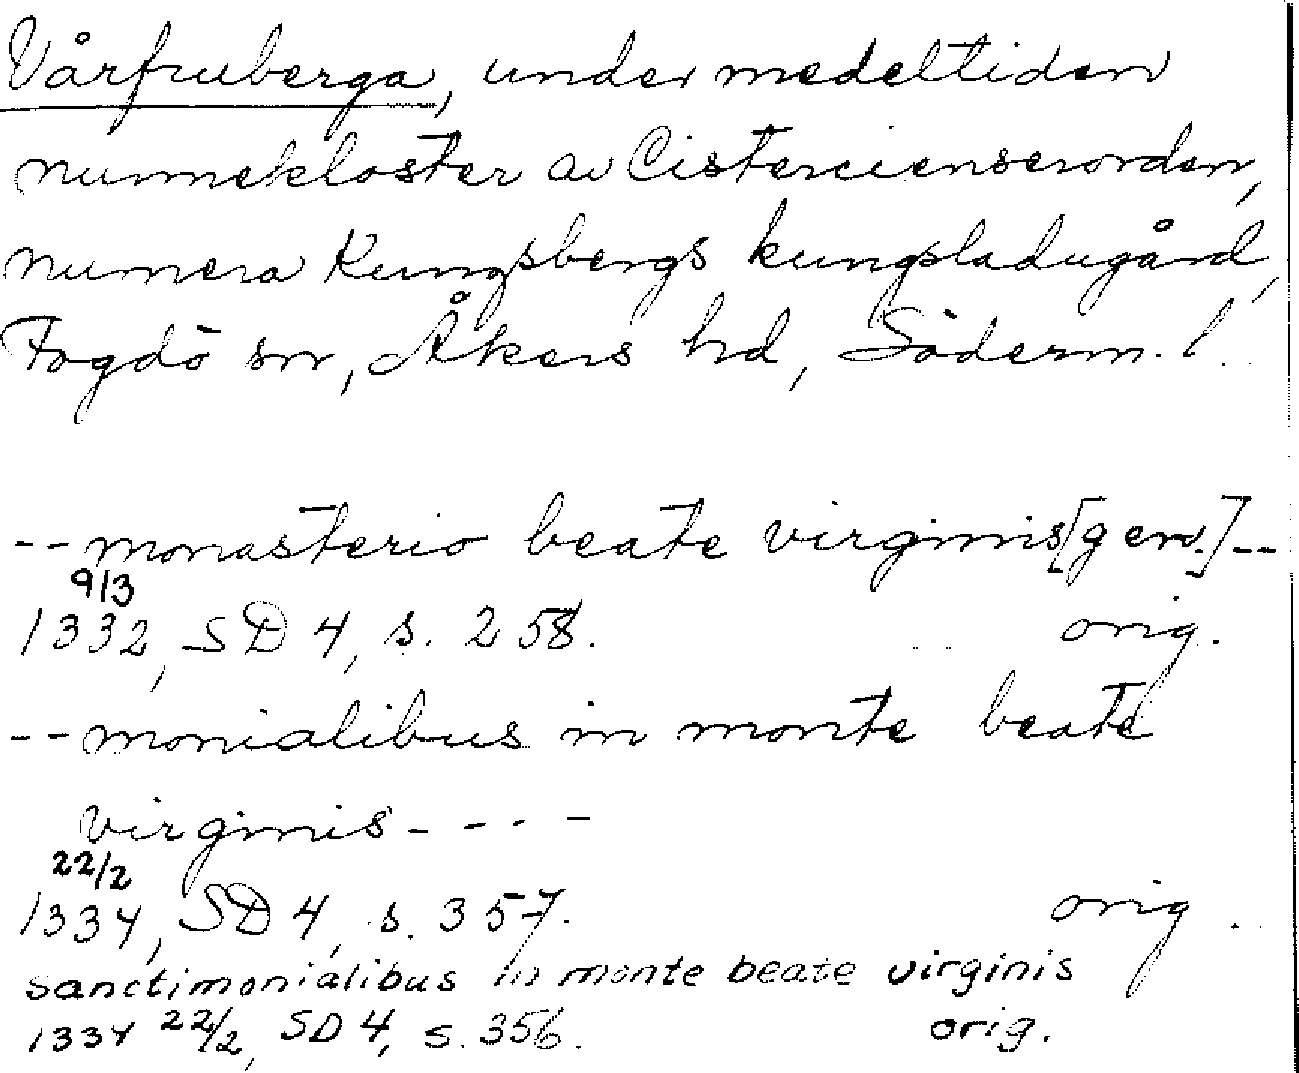 Vårfruberga, under medeltiden
nunnekloster av Cistercienserorden,
numera Kungsbergs kungsladugård,
Fogdö sn, Åkers hd, Söderm. l.
--monasterio beate virginis [gen.]--
9/3
1332, SD 4, s. 258. orig.
--monialibus in monte beate
virginis----
22/2
1334, SD 4, s. 357. orig.
sanctimonialibus in monte beate virginis
1334 22/2, SD 4, s. 356. orig.